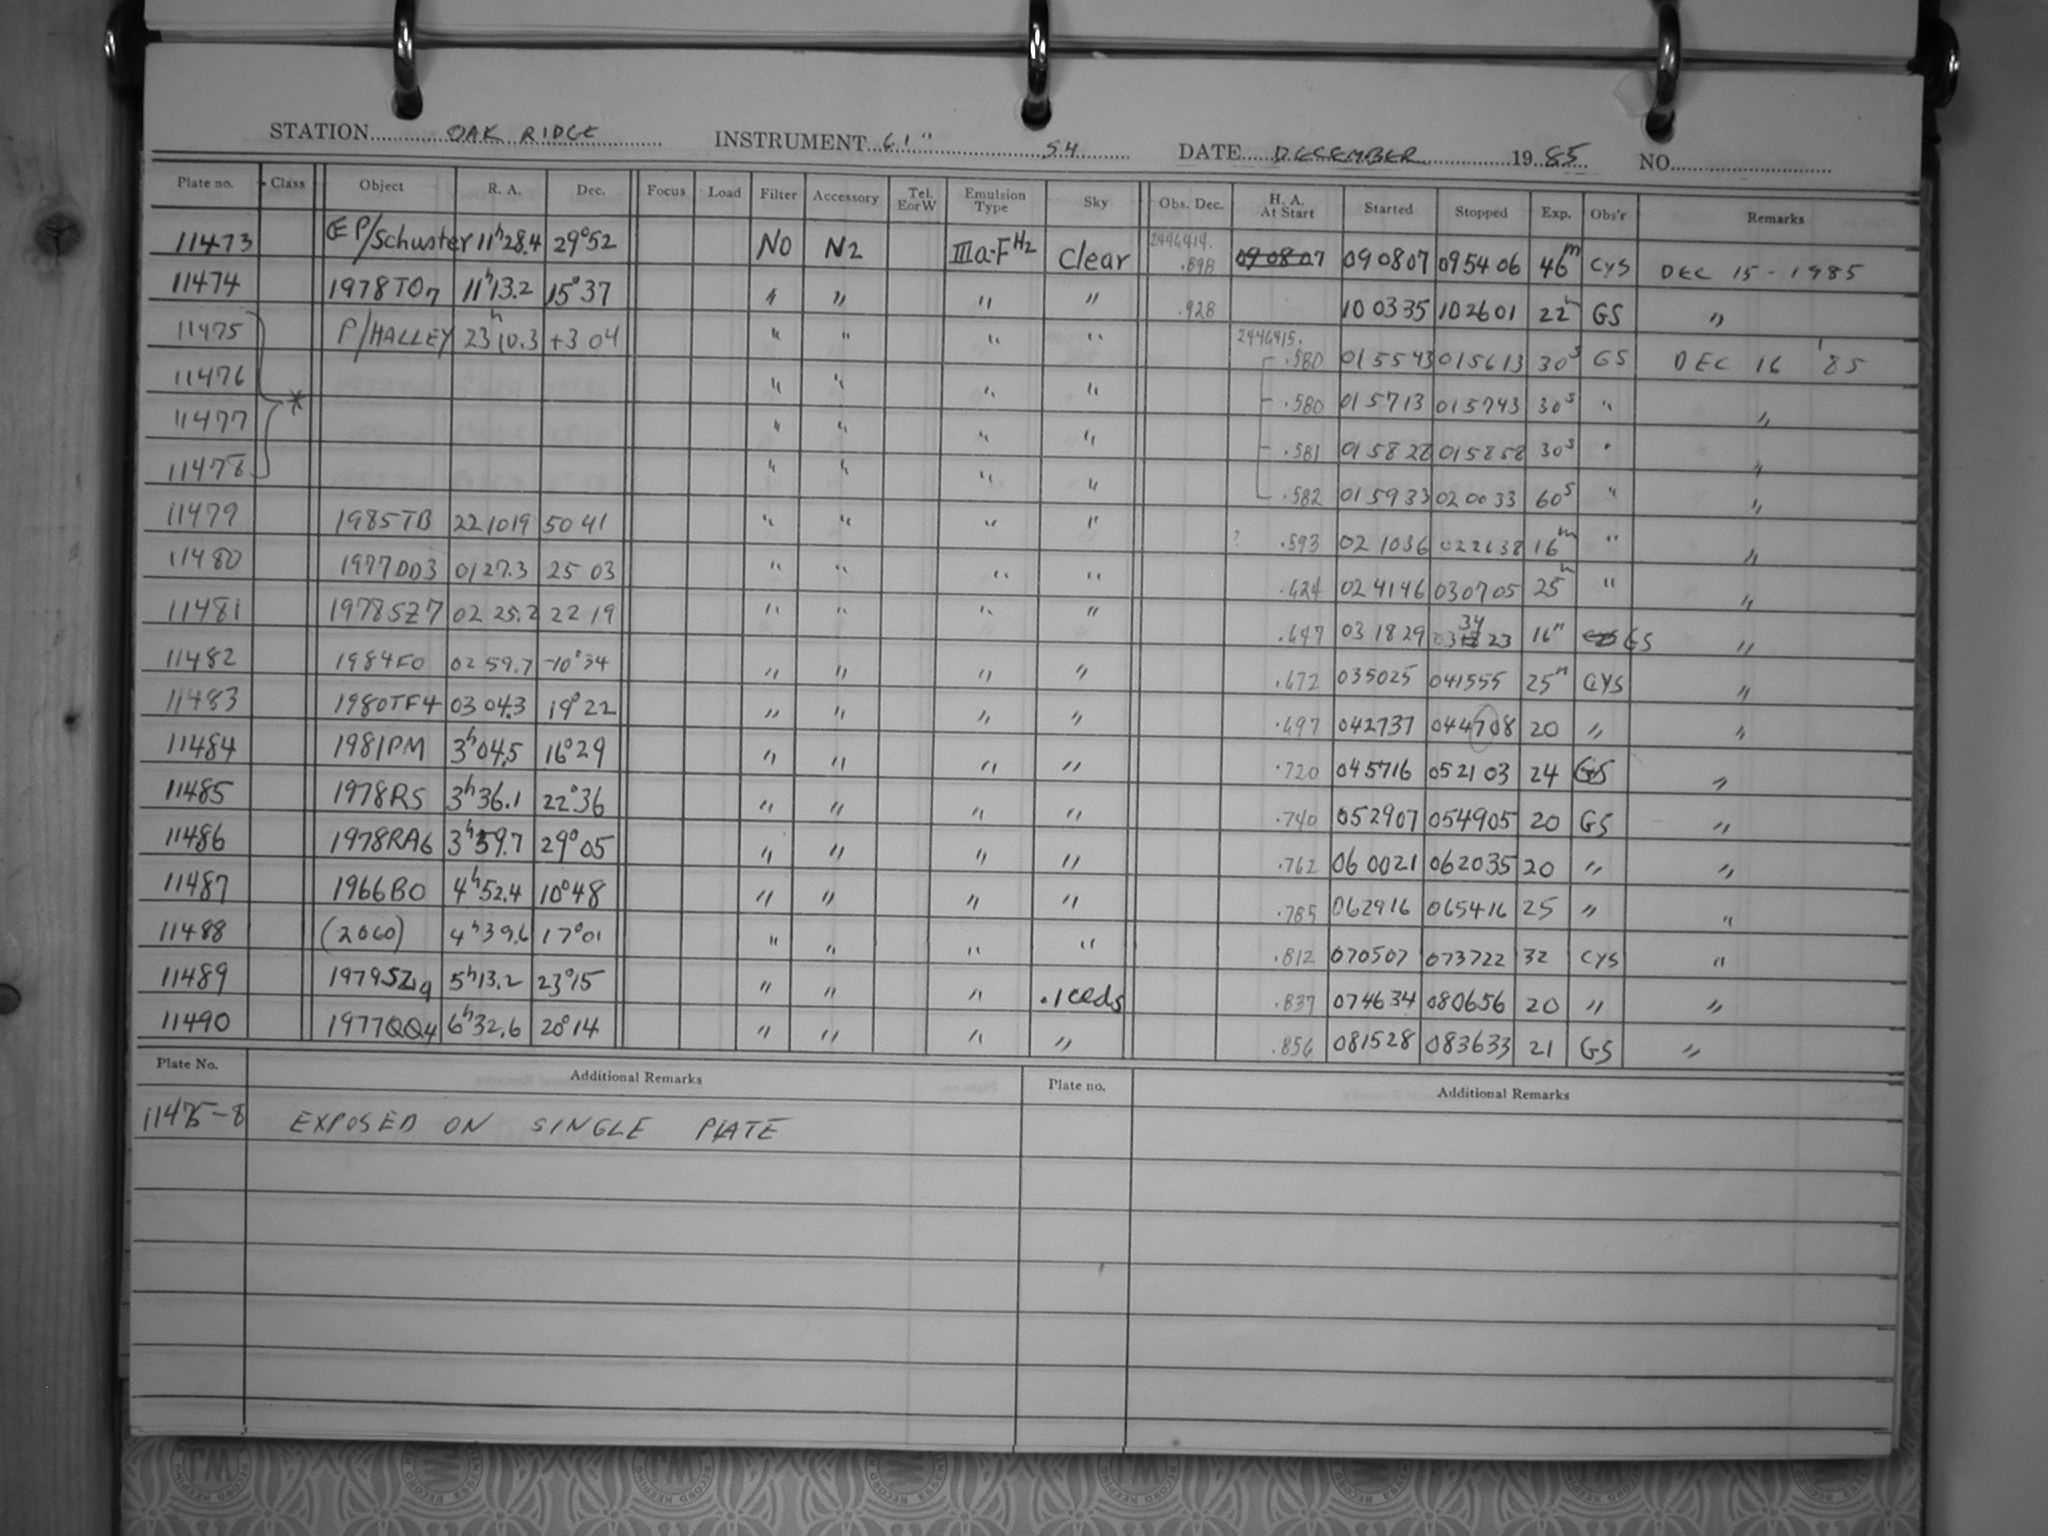 STATION OAK RIDGE INSTRUMENT 61" 54 DATE DECEMBER 1985 NO.
Plate no. Class Object R. A. Dec. Focus Load Filter Accessory Tel. E or W Emulsion Type Sky Obs. Dec. H. A. At Start Started Stopped Exp. Obs'r Remarks
11473 P/Schuster 11h28.4 29°52 NO N2 IIIa-F H2 Clear 2446414. .898 090807 090807 095406 46m CYS DEC 15-1985
11474 1978TO7 11h13.2 15°37 " " " " .928 100335 102601 22m GS "
11475 P/HALLEY 23h10.3 +3 04 " " " " 2446415. .580 015543 015613 30s GS DEC 16 '85
11476 " " " " .580 015713 015743 30s " "
11477 * " " " " .581 015828 015858 30s " "
11478 " " " " .582 015933 020033 60s " "
11479 1985TB 22 1019 50 41 " " " " ? .593 021036 022638 16m " "
11480 1977DD3 0127.3 25 03 " " " " .624 024146 030705 25m " "
11481 1978SZ7 02 25.2 22 19 " " " " .647 031829 033423 16m GS "
11482 1984FO 02 59.7 -10°34 " " " " .672 035025 041555 25m CYS "
11483 1980TF4 03 04.3 19°22 " " " " .697 042737 044708 20 " "
11484 1981PM 3h04.5 16°29 " " " " .720 045716 052103 24 GS "
11485 1978RS 3h36.1 22°36 " " " " .740 052907 054905 20 GS "
11486 1978RA6 3h39.7 29°05 " " " " .762 060021 062035 20 " "
11487 1966BO 4h52.4 10°48 " " " " .785 062916 065416 25 " "
11488 (2060) 4h39.6 17°01 " " " " .812 070507 073722 32 CYS "
11489 1979SZ9 5h13.2 23°15 " " " .1 clds .837 074634 080656 20 " "
11490 1977QQ4 6h32.6 20°14 " " " " .856 081528 083633 21 GS "
Plate No. Additional Remarks Plate no. Additional Remarks
11475-8 EXPOSED ON SINGLE PLATE